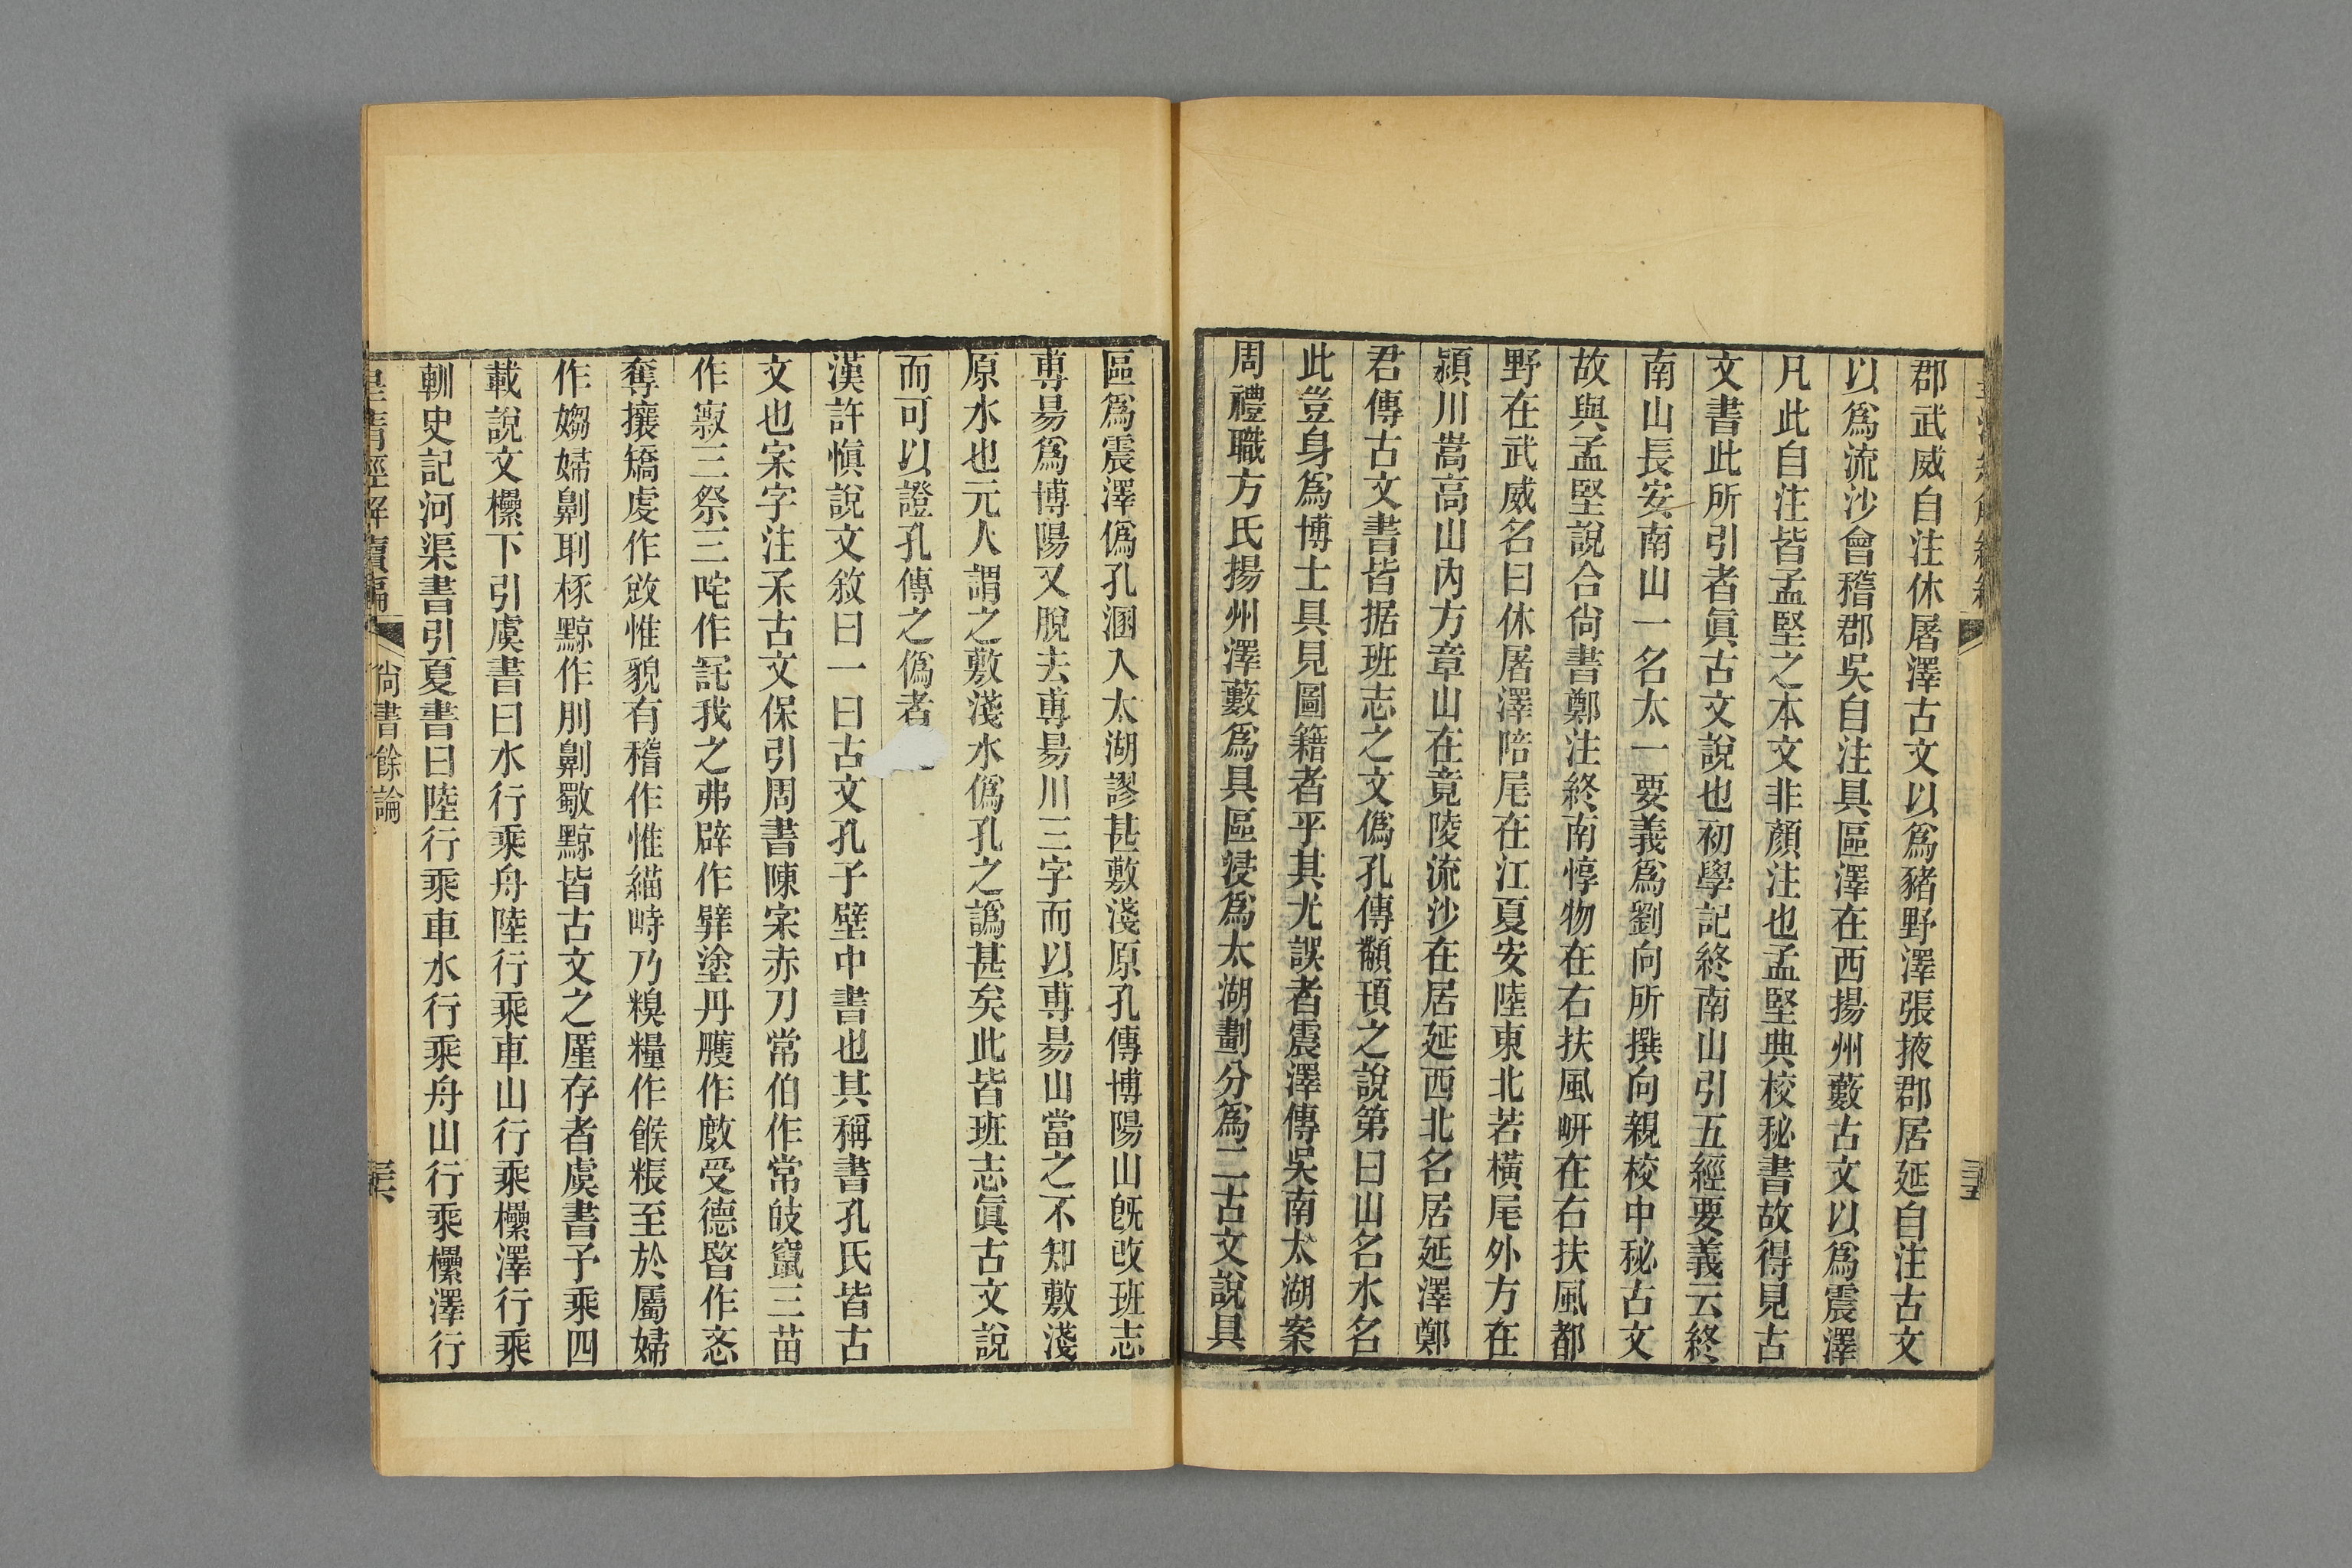 郡武威自注休屠澤古文以爲豬野澤張掖郡居延自注古文
以爲流沙會稽郡吳自注具區澤在西揚州藪古文以爲震澤
凡此自注皆孟堅之本文非顏注也孟堅典校秘書故得見古
文書此所引者眞古文說也初學記終南山引五經要義云終
南山長安南山一名太一要義爲劉向所撰向親校中秘古文
故與孟堅說合尙書鄭注終南惇物在右扶風岍在右扶風都
野在武威名曰休屠澤陪尾在江夏安陸東北若橫尾外方在
潁川嵩高山內方章山在竟陵流沙在居延西北名居延澤鄭
君傳古文書皆据班志之文僞孔傳顢頇之說第曰山名水名
此豈身爲博士具見圖籍者乎其尤誤者震澤傳吳南太湖案
周禮職方氏揚州澤藪爲具區浸爲太湖劃分爲二古文說具
區爲震澤僞孔溷入太湖謬甚敷淺原孔傳博陽山旣改班志
尃昜爲博陽又脫去尃昜川三字而以尃昜山當之不知敷淺
原水也元人謂之敷淺水僞孔之譌甚矣此皆班志眞古文說
而可以證孔傳之僞者
漢許愼說文敘曰一曰古文孔子壁中書也其稱書孔氏皆古
文也宲字注禾古文保引周書陳宲赤刀常伯作常㪏竄三苗
作㝮三祭三咤作䆛我之弗辟作㢸塗丹雘作𢾖受德暋作忞
奪攘矯虔作敓惟貌有稽作惟緢峙乃糗糧作餱粻至於屬婦
作媰婦劓刵椓黥作刖劓斀黥皆古文之厪存者虞書予乘四
載說文欙下引虞書曰水行乘舟陸行乘車山行乘欙澤行乘
軕史記河渠書引夏書曰陸行乘車水行乘舟山行乘欙澤行
皇淸經解續編
尙書餘論